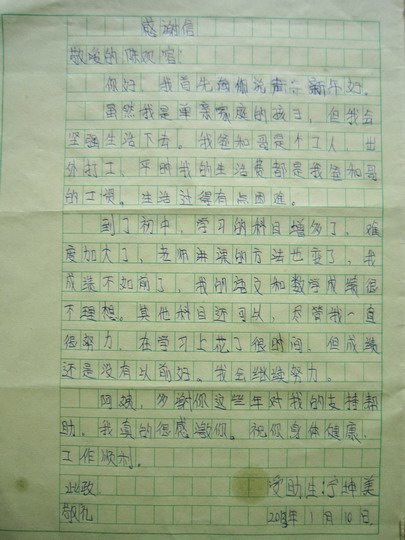 感谢信
敬爱的陈欢宿:
你好!我首先给你说声新年好。
虽然我是单亲家庭的孩子,但我会
坚强生活下去。我爸和哥是个工人,出
外打工,平时我的生活费都是我爸和哥
的工惯。生活过得有点困难。
到了初中,学习的科目增多了,难
度加大了,老师讲课的方法也变了,我
成绩不如前了,我的语文和数学成绩很
不理想。其他科目还可以,尽管我一直
很努力,在学习上花了很时间,但成绩
还是没有以前好。我会继续努力。
阿姨,多谢你这些年对我的支持帮
助,我真的很感激你。祝你身体健康,
工作顺利。
此致 受助生:宁坤美
敬礼 2013年1月10日